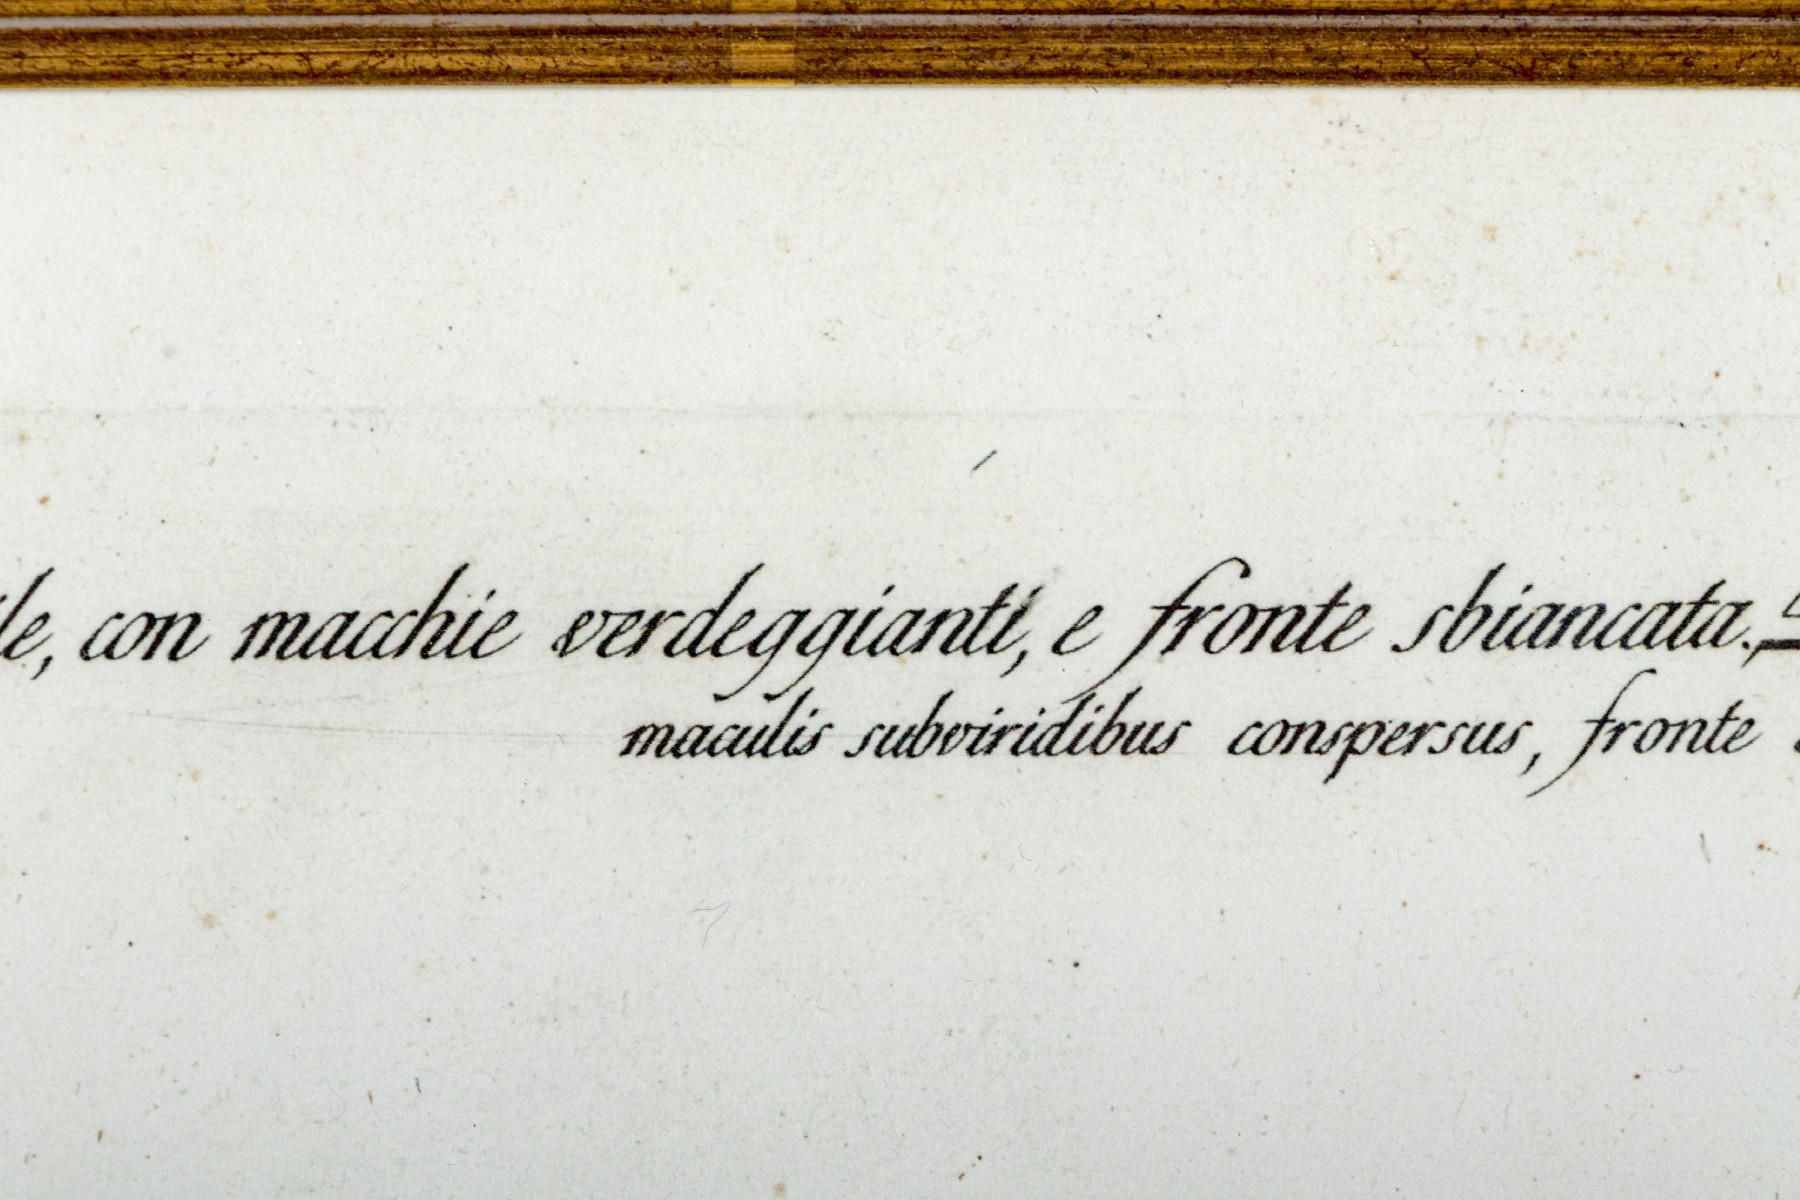 con macchie verdeggianti, e fronte sbiancata.
maculis subviridibus conspersus, fronte